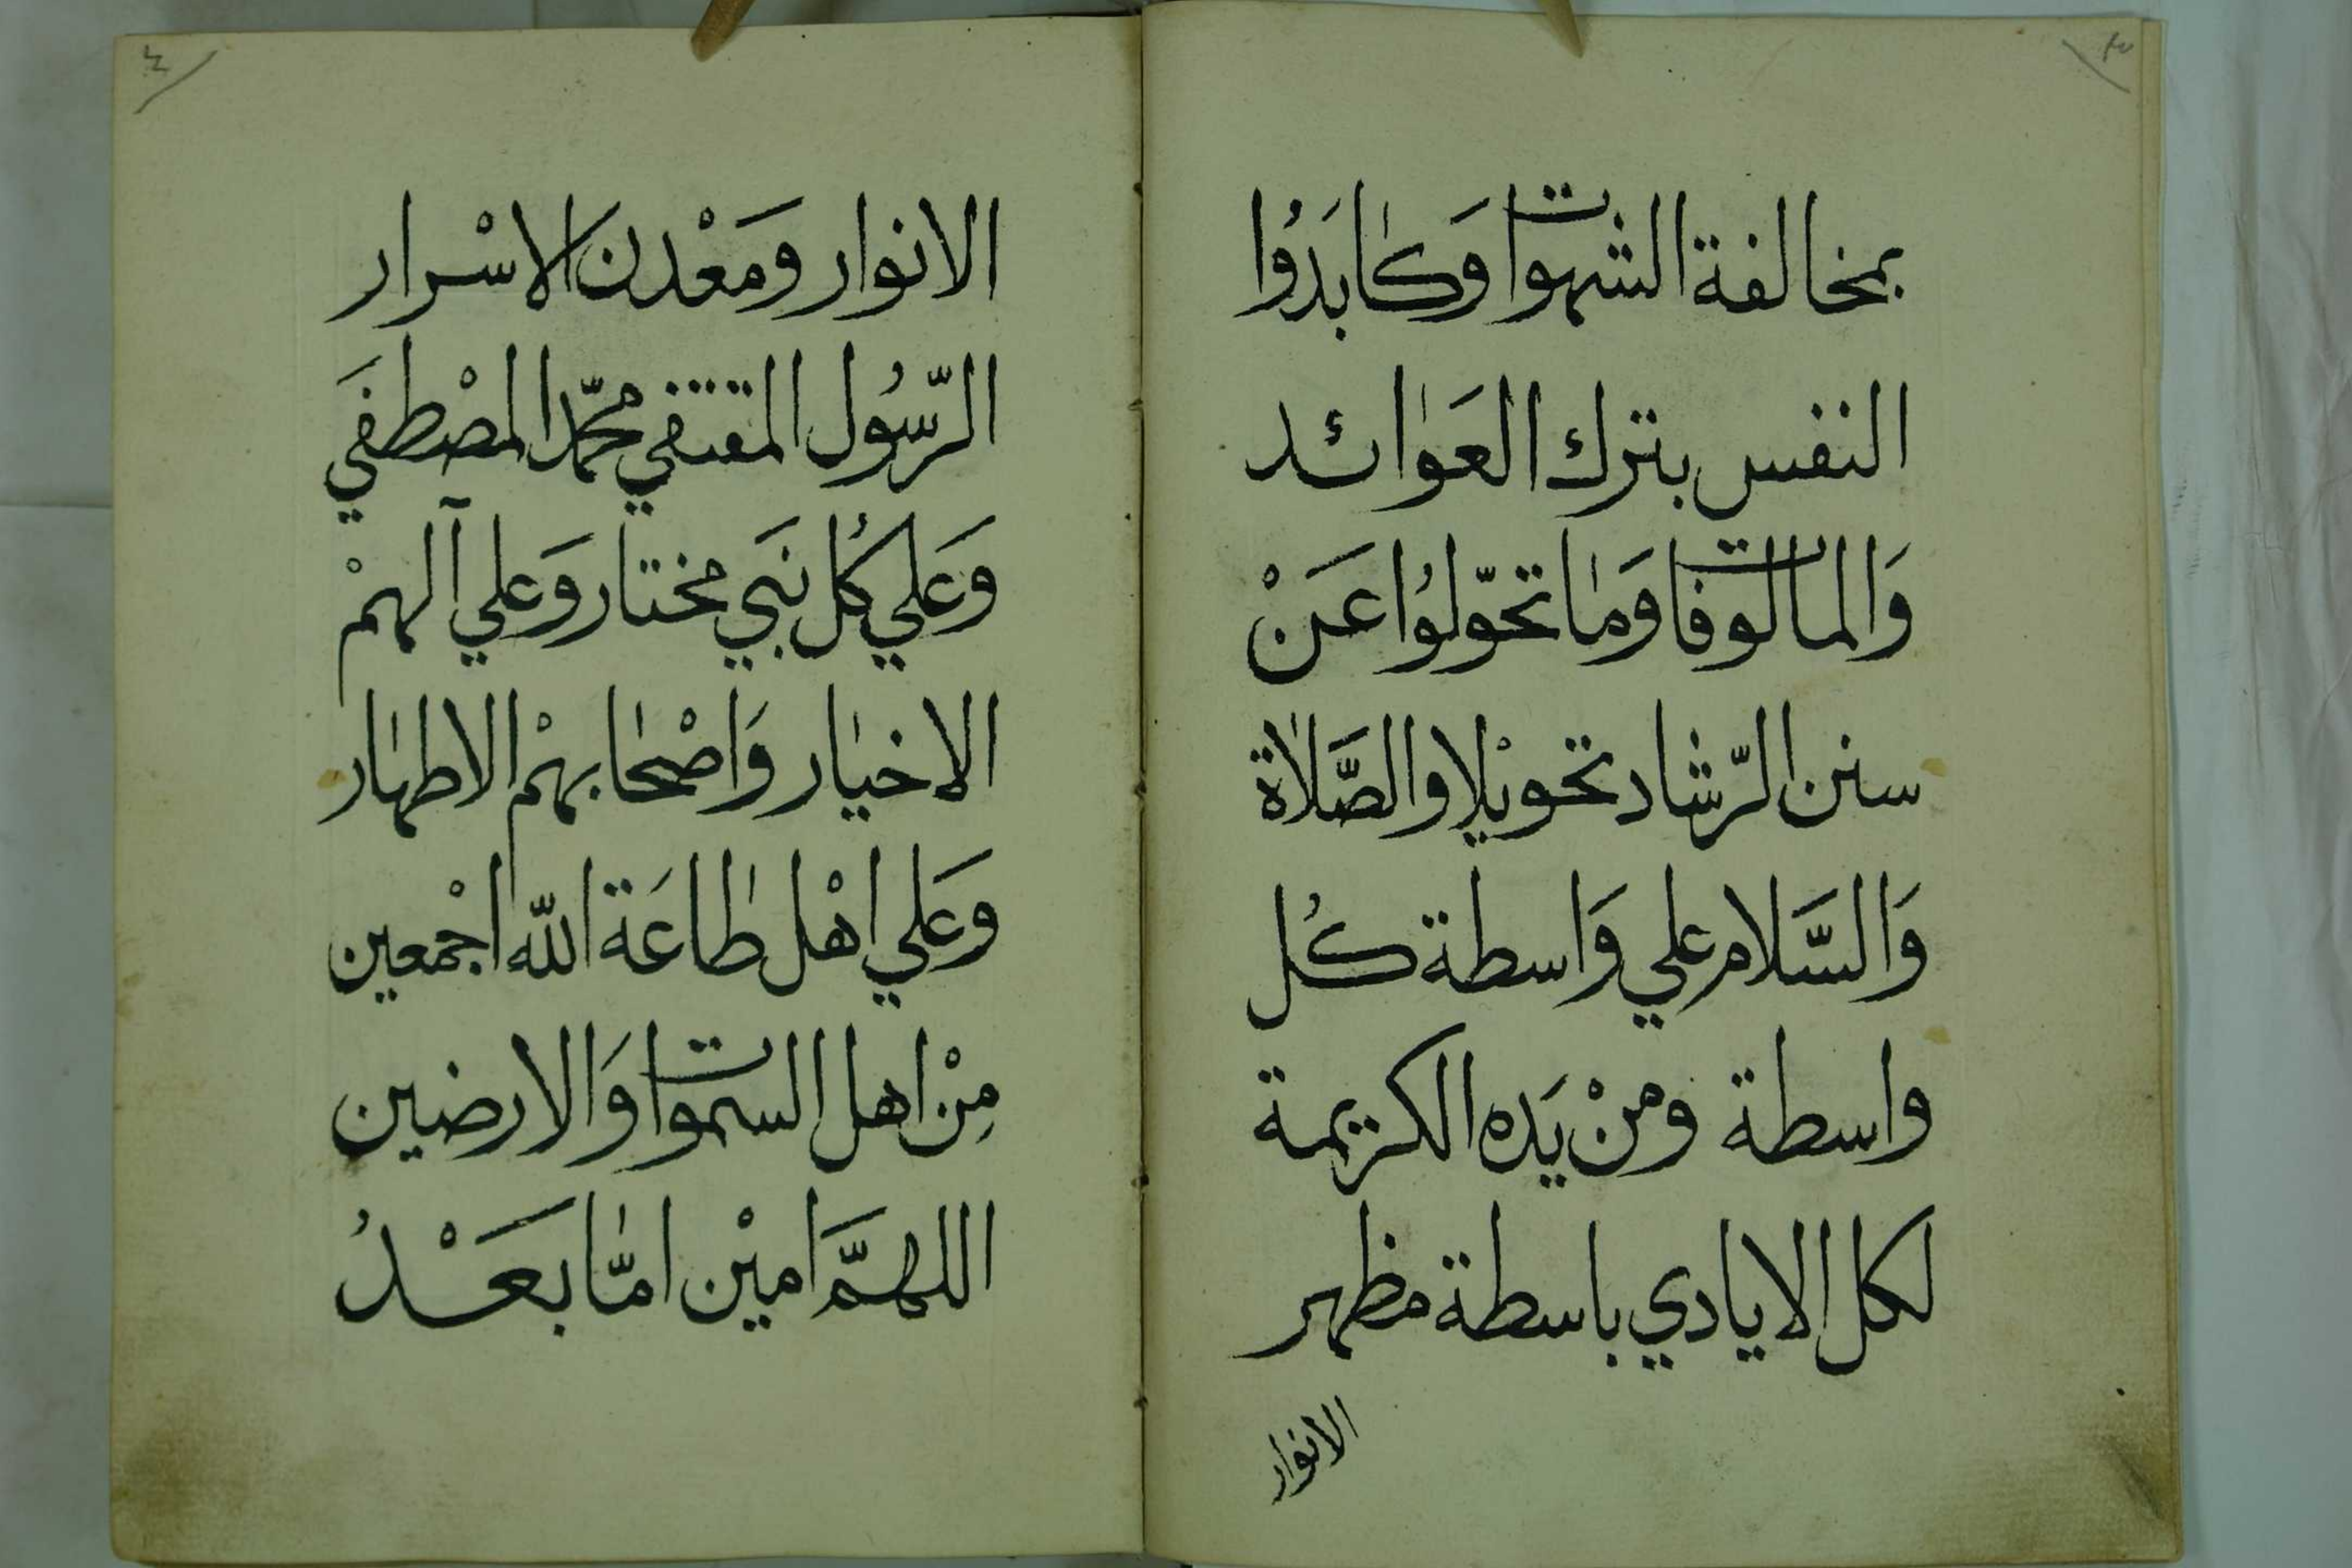 ٣
بمخالفة الشهوات وَكابَدُوا
النفس بترك العَوائد
وَالمالوفات وَما تحوّلوُا عَنْ
سنن الرّشاد تحويْلا والصَّلاة
وَالسَّلام علي وَاسطة كُل
واسطة ومنْ يَده الكريمة
لكل الايادي باسطة مظهر
الانوار
٤
الانوار وَمَعْدن الاسْرار
الرّسُول المقتفي محمّد المصْطفَي
وَعَلي كُل نَبي مختار وَعلي آلهمْ
الاخيار وَاصْحابهمْ الاطهار
وَعَلي اهْل طاعَة اللّه اجْمعين
مِنْ اهل السموات وَالارضين
اللهمَّ امَيْن امّا بَعَـْـدُ